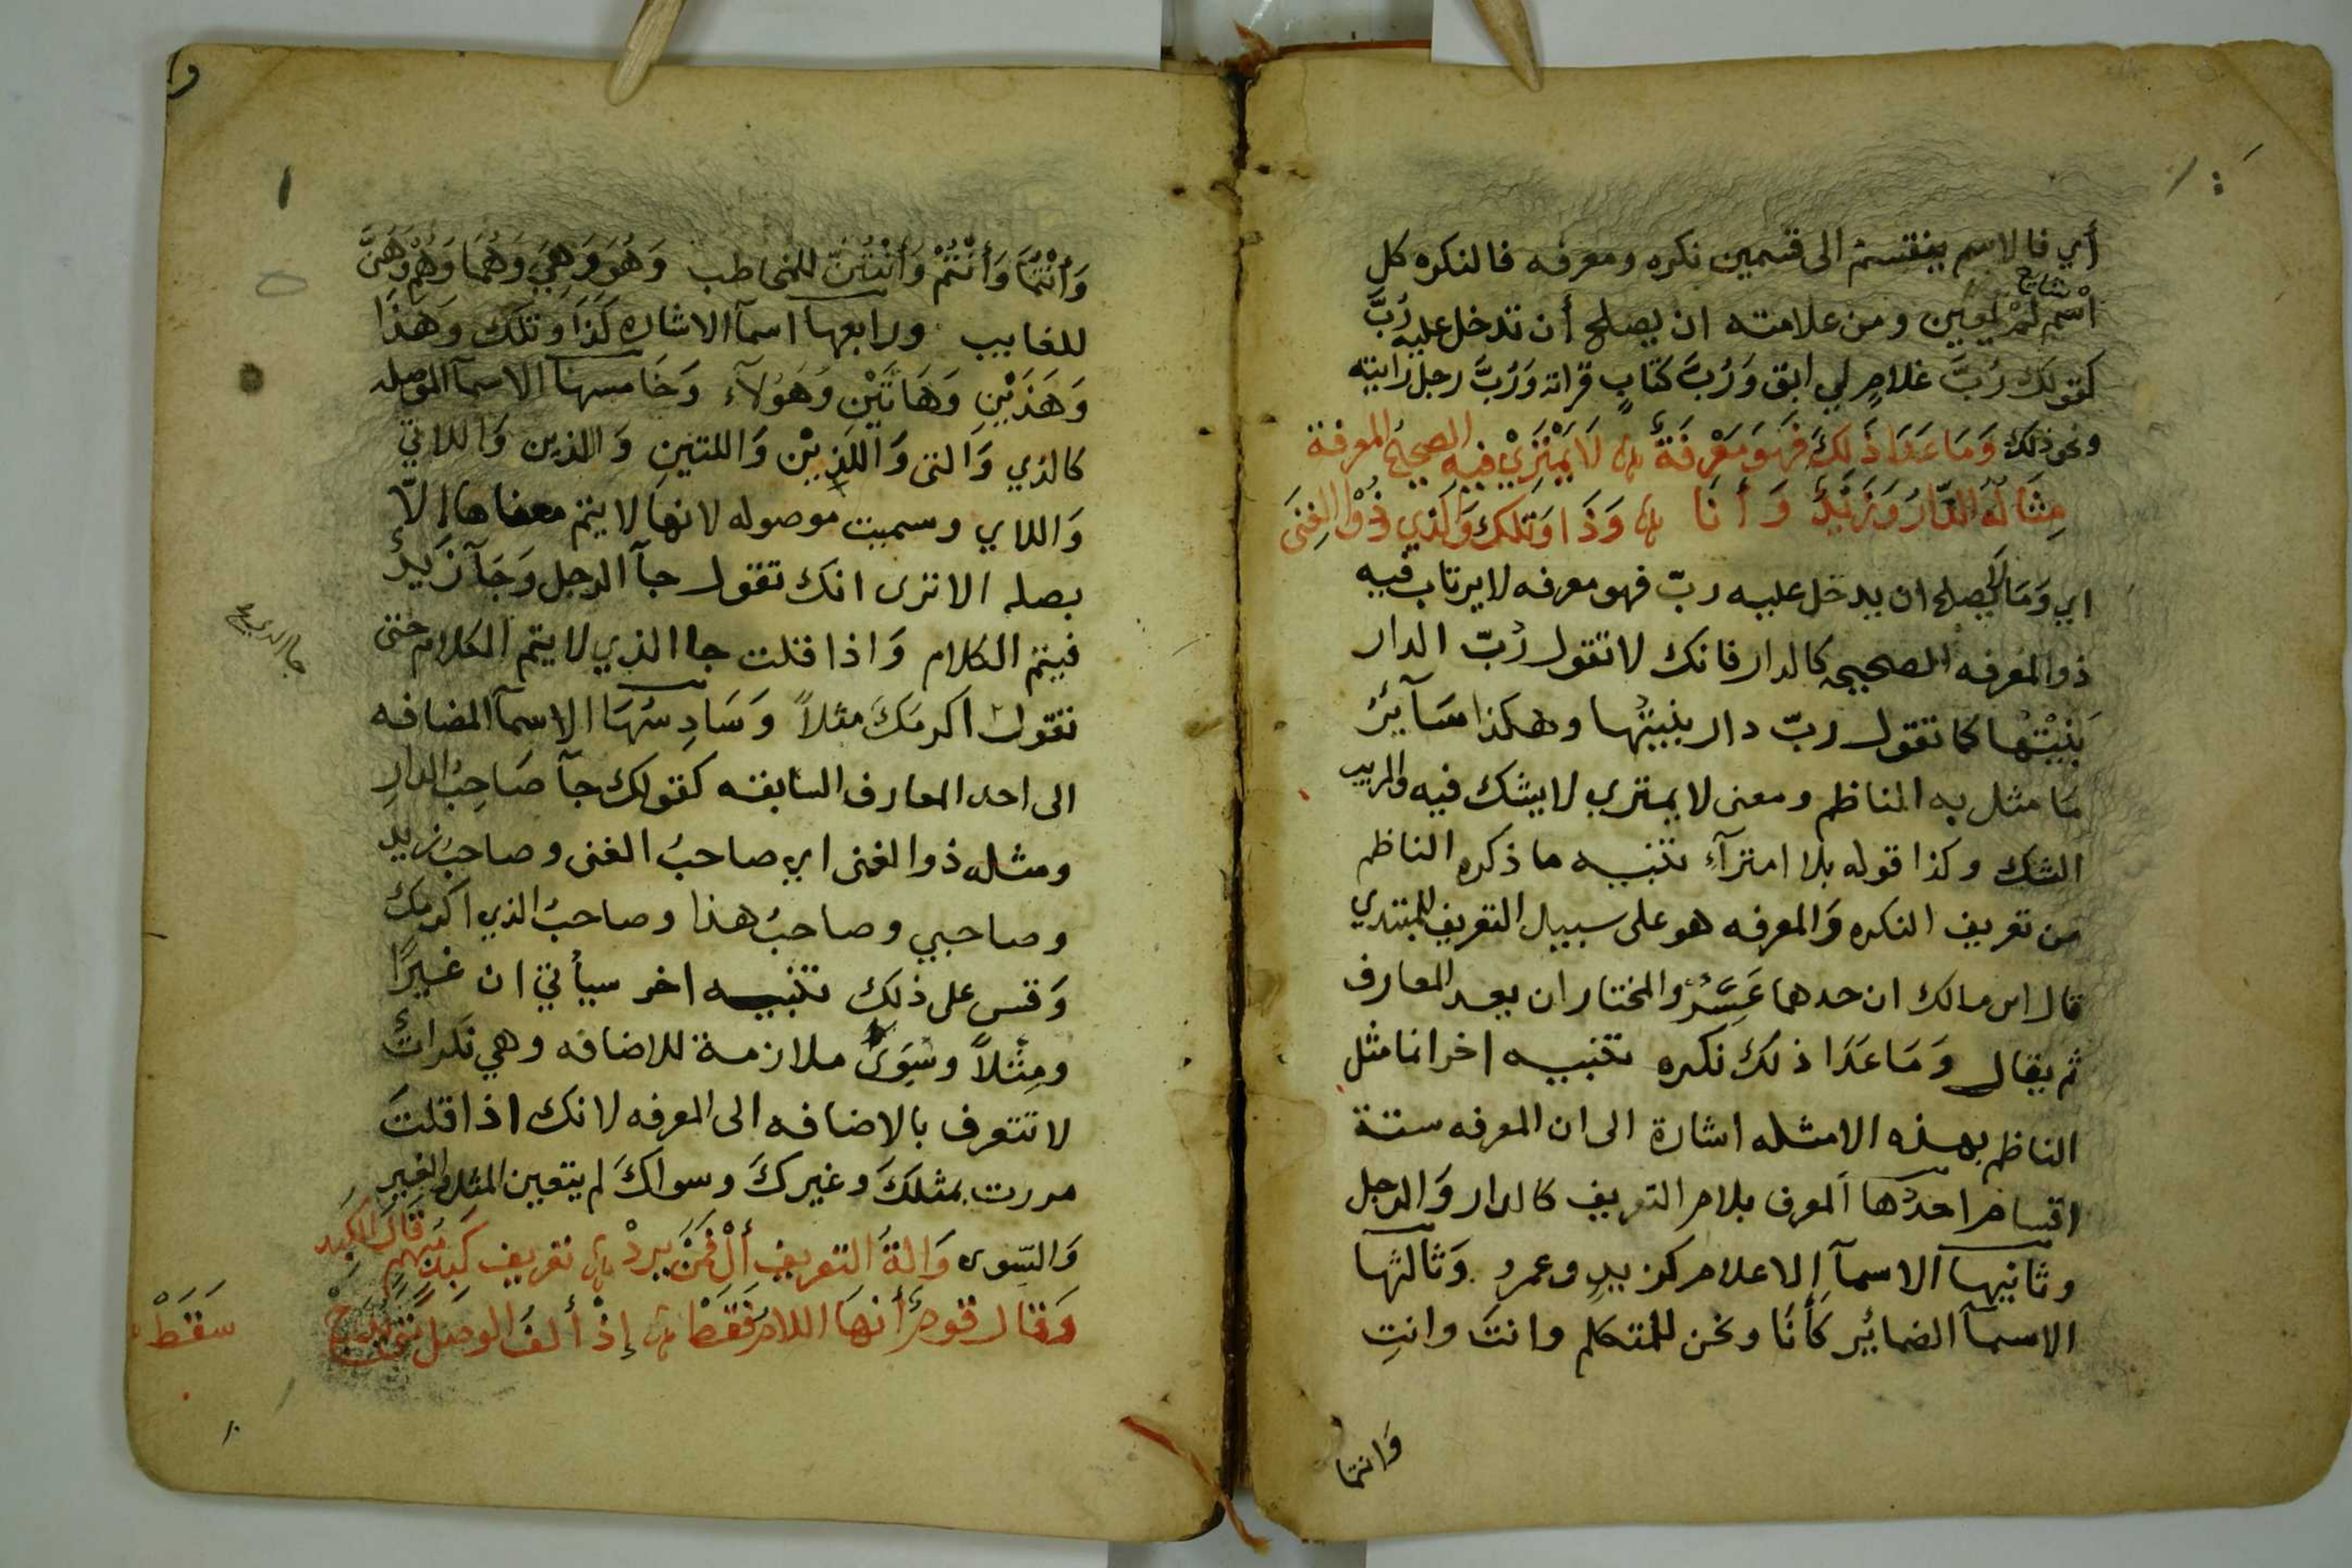 أي فالاسم ينقسم الى قسمين نكره ومعرفه فالنكره كل
اسْم لَمْ يعين ومن علامته ان يصلح أن تدخل عليه رُبَّ
شايع
كقولك رُبَّ غلامٍ لي ابق وَرُبَّ كتابٍ قراته وَرُبَّ رجل رايته
ونحو ذلك وَمَا عَدَا ذَلِكَ فَهوَ مَعْرِفَةْ لَا يَمْتَرِيْ فيهِ الصحيحُ المعرفة
مِثَالُهُ الدَّارُ وَزَيْدٌ وَأَنَا وَذَا وَتلكَ وَالَّذي وَذُوْ الغِنَى
اي وَمَا لا يصلح ان يدخل عليه ربّ فهو معرفه لا يرتاب فيه
ذو المعرفه الصحيحه كالدار فانك لا تقول رُبّ الدار
بَنِيْتُها كما تقول ربّ دار بنيتُها وهكذا سَآئِرُ
مَا مثل به الناظم ومعنى لا يمتري لا يشك فيه والريب
الشك وكذا قوله بلا امترآءِ تنبيه ما ذكره الناظم
من تعريف النكره وَالمعرفه هو على سبيل التقريف للمبتدي
قال ابن مالك ان حدهما عَسِرٌ والمختار ان يعد المعارف
ثم يقال وَمَا عَدَا ذلك نكره تنبيه اخر انما مثل
الناظم بهذه الامثله اشارة الى ان المعرفه ستة
اقسام احدُها المعرف بلام التعريف كالدار وَالرجل
وثانيها الاسمآ الاعلام كزيدٍ وعمرو وَثالثها
الاسمآ الضمائر كأَنَا ونحن للمتكلم وانتَ وانتِ
وَانتما
وَأَنْتُمَا وَأَنْتُمْ وَأَنْتُنَّ للمخاطب وَهُوَ وَهِيَ وَهُمَا وَهُمْ وَهُنَّ
للغايب ورابعها اسمآ الاشاره كَذَا وتلك وَهَذَا
وَهَذَيْنِ وَهَاتَيْنِ وَهَؤلآءِ وَخَامسها الاسمآ الموصله
كالذي وَالتى وَاللَّذَيْن وَاللتينِ وَالذين وَاللاتي
وَاللاي وسميت موصوله لانها لا يتم معناها إلاّ
بصله الا ترى انك تقول جآ الرجل وَجَآ زَيدٌ
فيتم الكلام وَاذا قلت جا الذي لا يتم الكلام حتى
تقول اكرمَكَ مثلاً وَسَادِسُهَا الاسمآ المضافه
الى احد المعارف السابقه كقولك جآ صَاحِبُ الدارِ
ومثله ذو الغنى اي صاحبُ الغنى وصاحبُ زيد
وصاحبي وصاحبُ هذا وصاحبُ الذي اكرمك
وَقس على ذلك تنبيه اخر سيأتي ان غيرًا
ومِثْلاً وسِوَى ملازمة للاضافه وهي نَكراتٌ
لا تتعرف بالاضافه الى المعرفه لانك اذا قلتَ
مررت بمثلكَ وغيركَ وسواكَ لم يتعين المثل والغير
وَالسّوى وَالةُ التعريفِ أَلْ فَمَنْ يُرِدْ تعريف كَبدٍ مُبهمٍ قالَ الكبد
وَقال قومٌ أنها اللامُ فَقَطْ إِذْ ألفُ الوصل
سَقَطْ